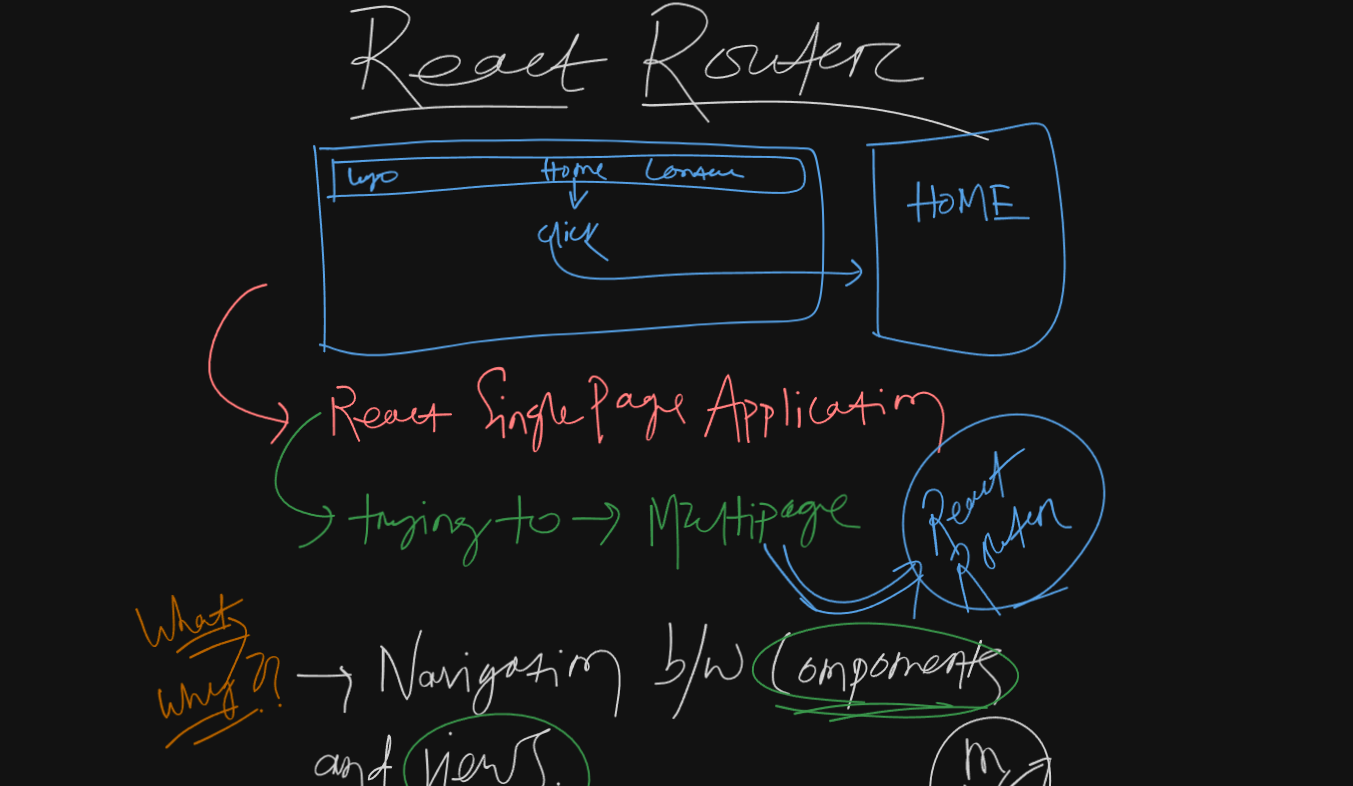 React Router
Logo Home
HOME
click
React Single Page Application
trying to → Multipage
React
Router
What
Why??
→ Navigation b/w Components
and views.